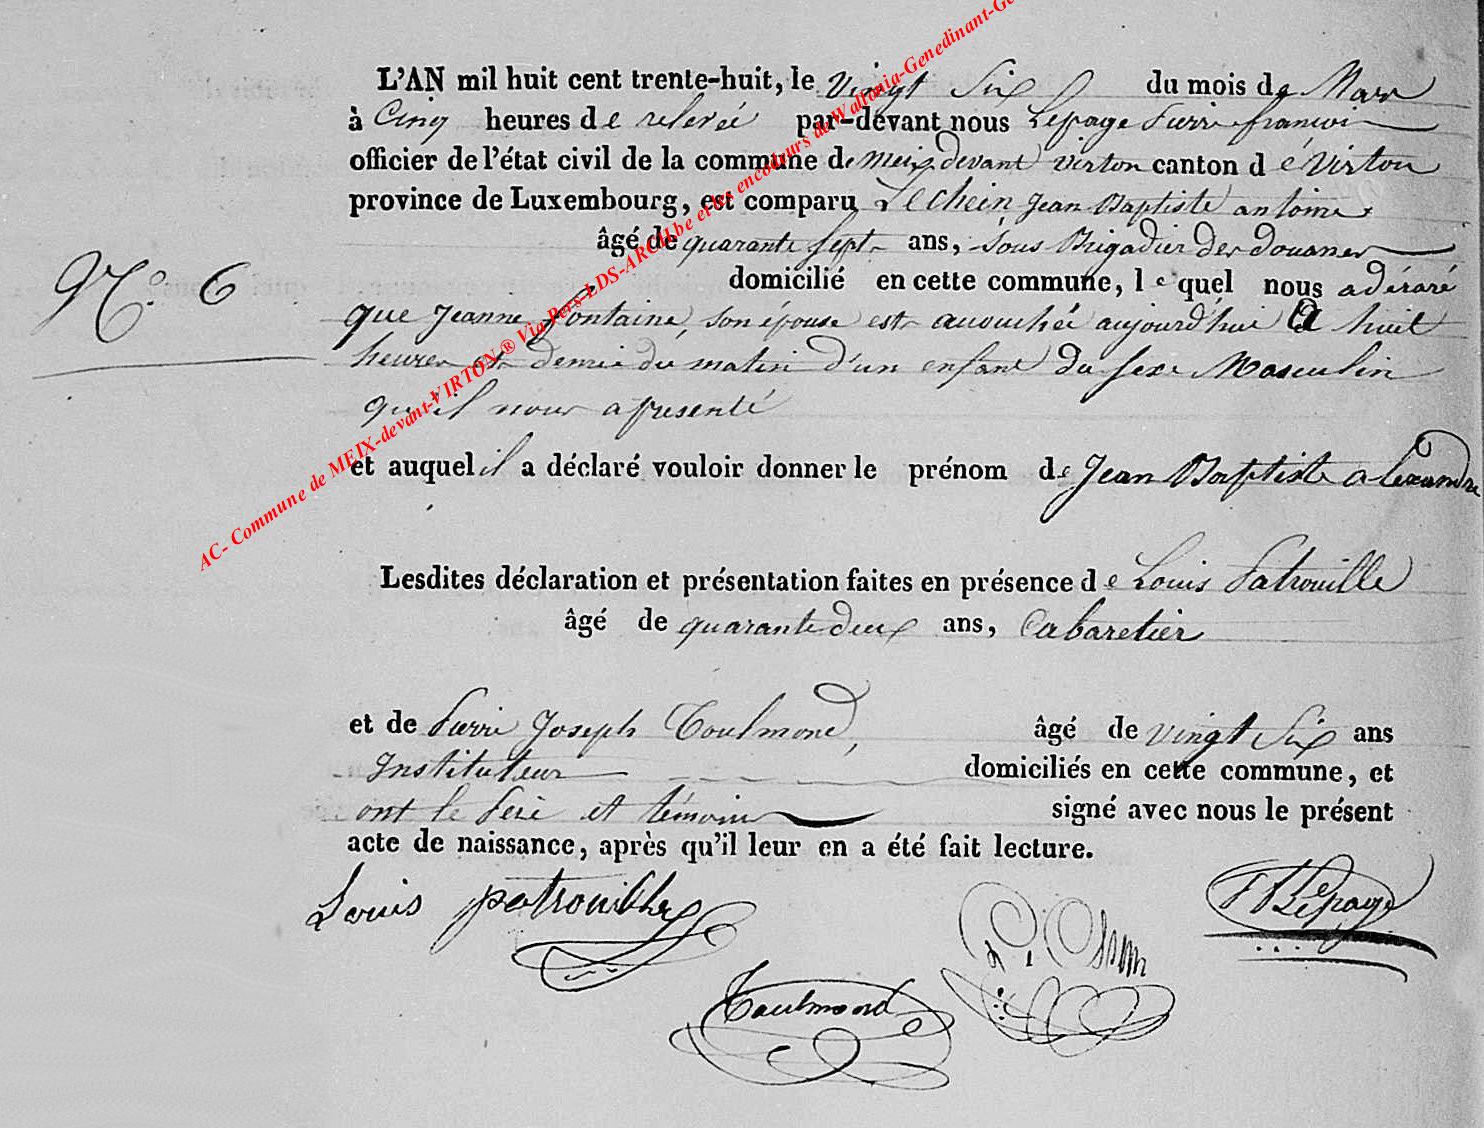 L'AN mil huit cent trente-huit, le vingt Six du mois de Mars
à Cinq heures de relevée par-devant nous Lepage Pierre françois
officier de l'état civil de la commune de Meix devant virton canton de Virton
province de Luxembourg, est comparu Lechein Jean Baptiste antoine
âgé de quarante Sept ans, Sous Brigadier des douanes
N° 6
domicilié en cette commune, lequel nous a déclaré
que Jeanne fontaine, son épouse est accouchée aujourd'hui à huit
heures et demie du matin d'un enfant du sexe Masculin
qu'il nous a présenté
et auquel il a déclaré vouloir donner le prénom de Jean Baptiste alexandre
Lesdites déclaration et présentation faites en présence de Louis Patrouille
âgé de quarante deux ans, Cabaretier
et de Pierre Joseph Toulmond, âgé de vingt Six ans
Instituteur domiciliés en cette commune, et
ont le Père et témoins signé avec nous le présent
acte de naissance, après qu'il leur en a été fait lecture.
Louis patrouille
Lepage
Toulmond
AC- Commune de MEIX-devant-VIRTON ® Via Pers-LDS-ARCH.be et les encodeurs de Wallonia-Genedinant-Ge